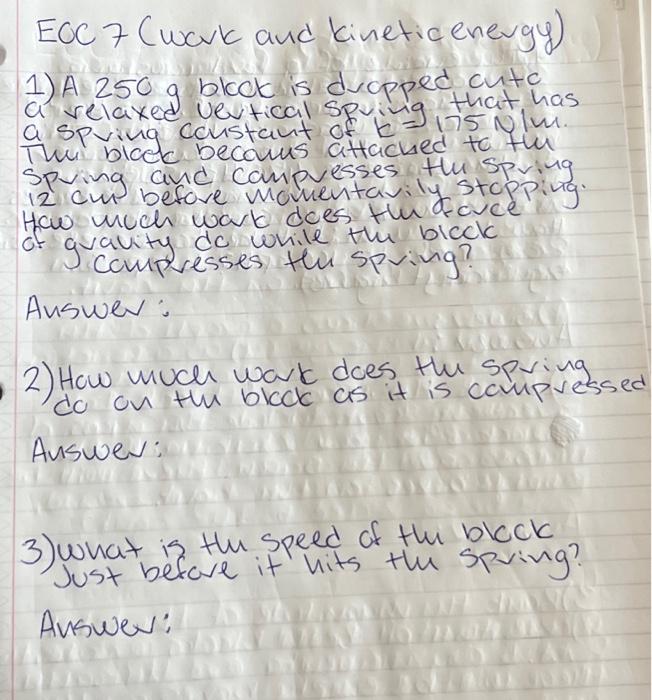 EOC 7 (work and kinetic energy)
1) A 250 g block is dropped onto
a relaxed vertical spring that has
a spring constant of k = 175 N/m.
The block becomes attached to the
spring and compresses the spring
12 cm before momentarily stopping.
How much work does the force
of gravity do while the block
compresses the spring?
Answer:
2) How much work does the spring
do on the block as it is compressed
Answer:
3) what is the speed of the block
Just before it hits the spring?
Answer: